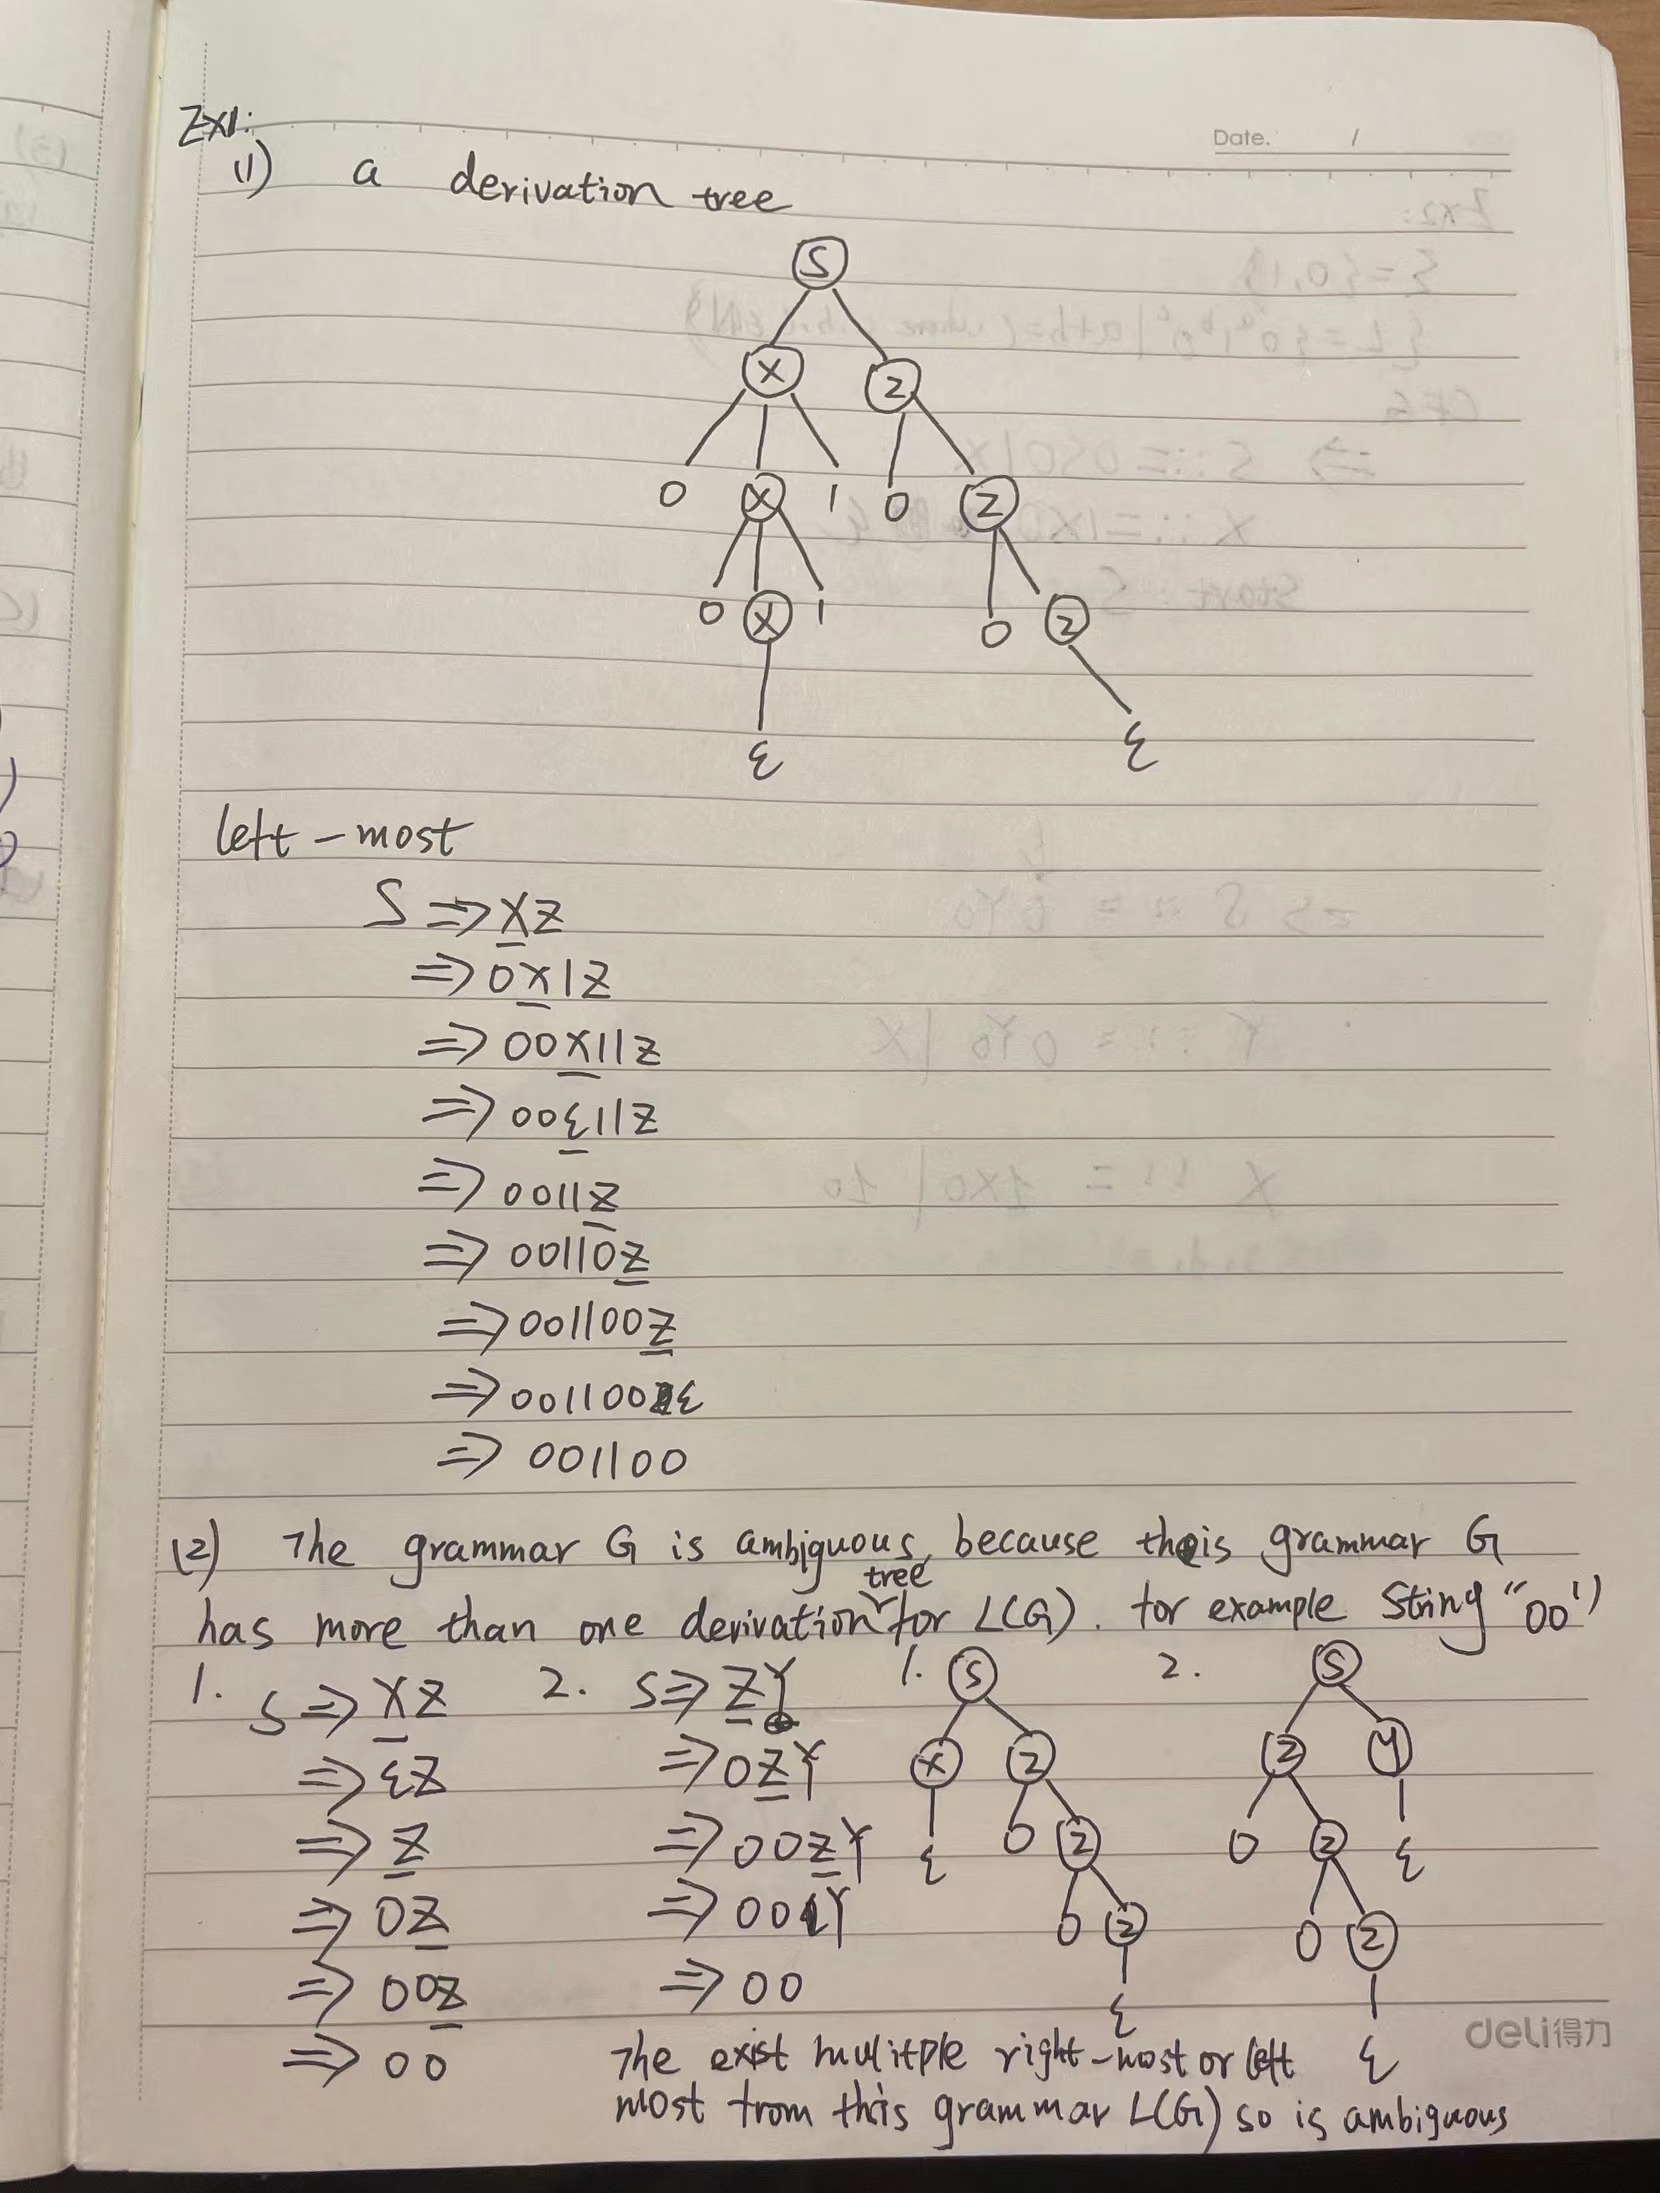 Ex1:
Date. /
(1) a derivation tree
S
X Z
0 X 1 0 Z
0 X 1 0 Z
ε ε
left-most
S => XZ
=> 0X1Z
=> 00X11Z
=> 00ε11Z
=> 0011Z
=> 00110Z
=> 001100Z
=> 001100ε
=> 001100
(2) The grammar G is ambiguous, because this grammar G
tree
has more than one derivation for L(G). for example String "00"
1. S => XZ
=> εZ
=> Z
=> 0Z
=> 00Z
=> 00
2. S => ZY
=> 0ZY
=> 00ZY
=> 00Y
=> 00
1. S
X Z
ε 0 Z
0 Z
ε
2. S
Z Y
0 Z ε
0 Z
ε
The exist mulitple right-most or left
most from this grammar L(G) so is ambiguous
deli得力